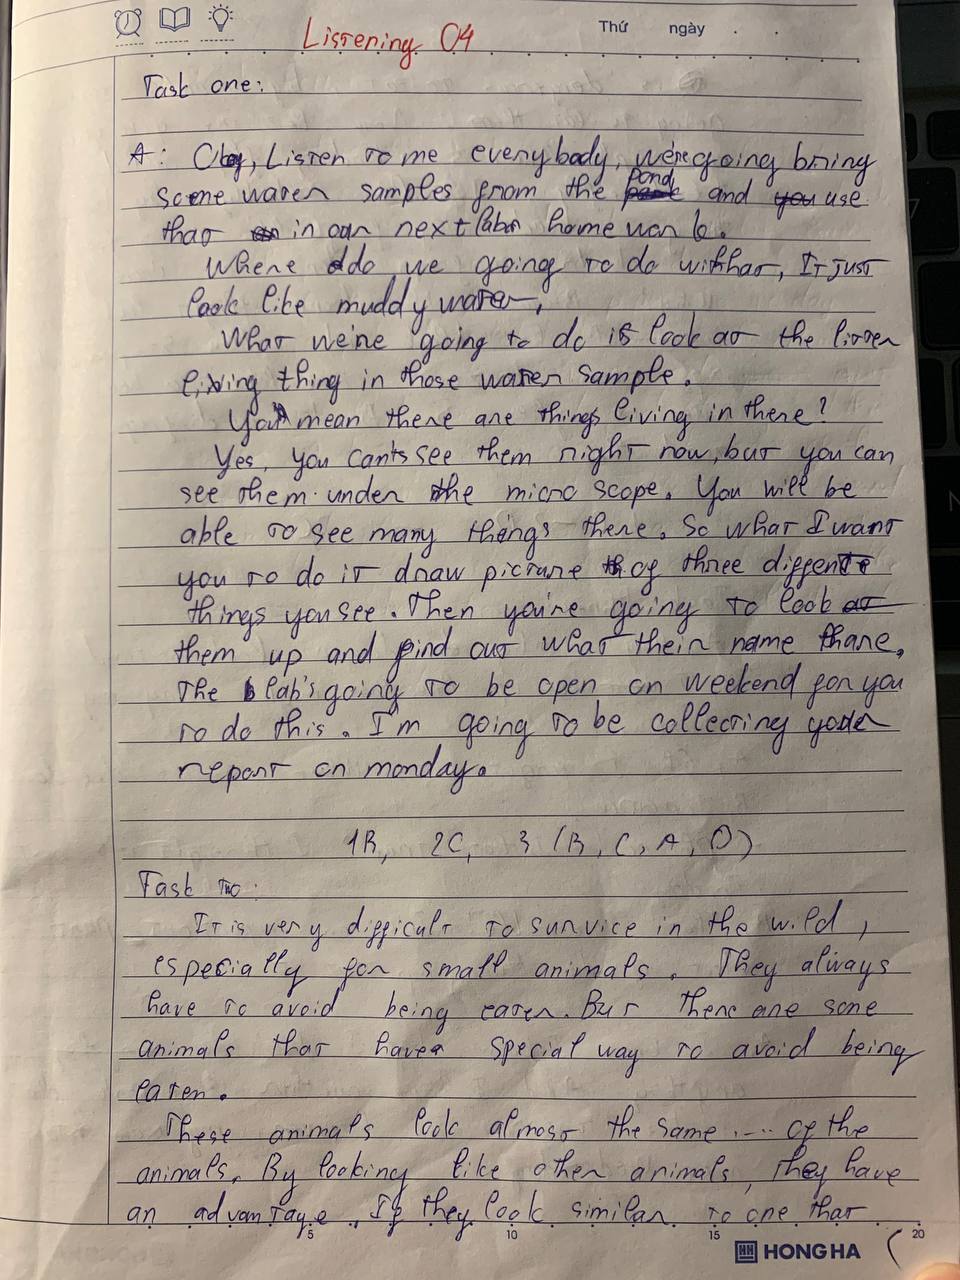 Thứ ngày . .
Listening 04
Task one:
A: Okay, Listen to me everybody, we're going bring
some water samples from the pond and use
that in our next lab home work.
Where do we going to do withhat, It just
look like muddy water,
What we're going to do is look at the
living thing in those water sample.
You mean there are things living in there?
Yes, you cant see them right now, but you can
see them under the micro scope. You will be
able to see many things there. So what I want
you to do it draw picture of three diffent
things you see. Then you're going to look
them up and find out what their name thare,
The lab's going to be open on weekend for you
to do this. I'm going to be collecting your
report on monday.
1B, 2C, 3 (B, C, A, D)
Task two:
It is very difficult to survice in the wild,
especially for small animals. They always
have to avoid being eaten. But there are some
animals that have special way to avoid being
eaten.
These animals look almost the same .... of the
animals. By looking like other animals, they have
an advantage. If they look similar to one that
5 10 15 20
HH HONG HA